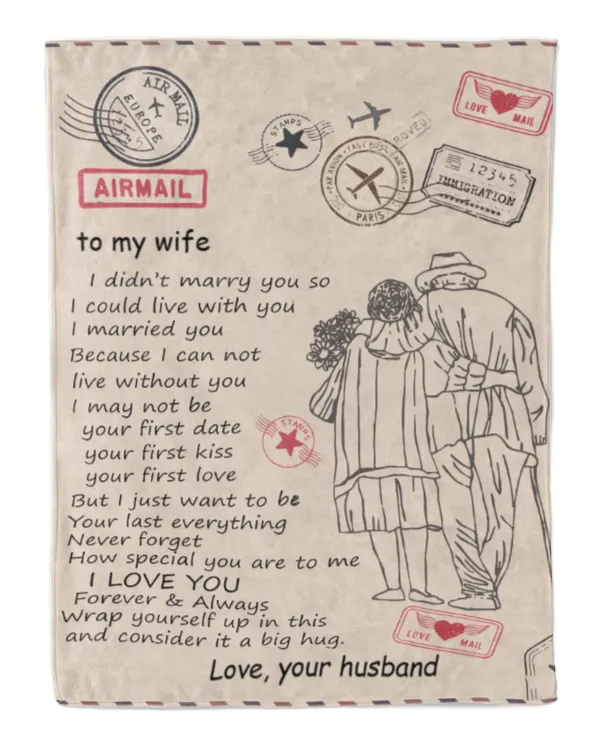 AIR MAIL
EUROPE
STAMPS
PAR AVION • FAST POST • AIR MAIL
PARIS
LOVE MAIL
12345
IMMIGRATION
AIRMAIL
to my wife
I didn't marry you so
I could live with you
I married you
Because I can not
live without you
I may not be
your first date
your first kiss
your first love
STAMPS
But I just want to be
Your last everything
Never forget
How special you are to me
I LOVE YOU
Forever & Always
Wrap yourself up in this
and consider it a big hug.
LOVE MAIL
Love, your husband